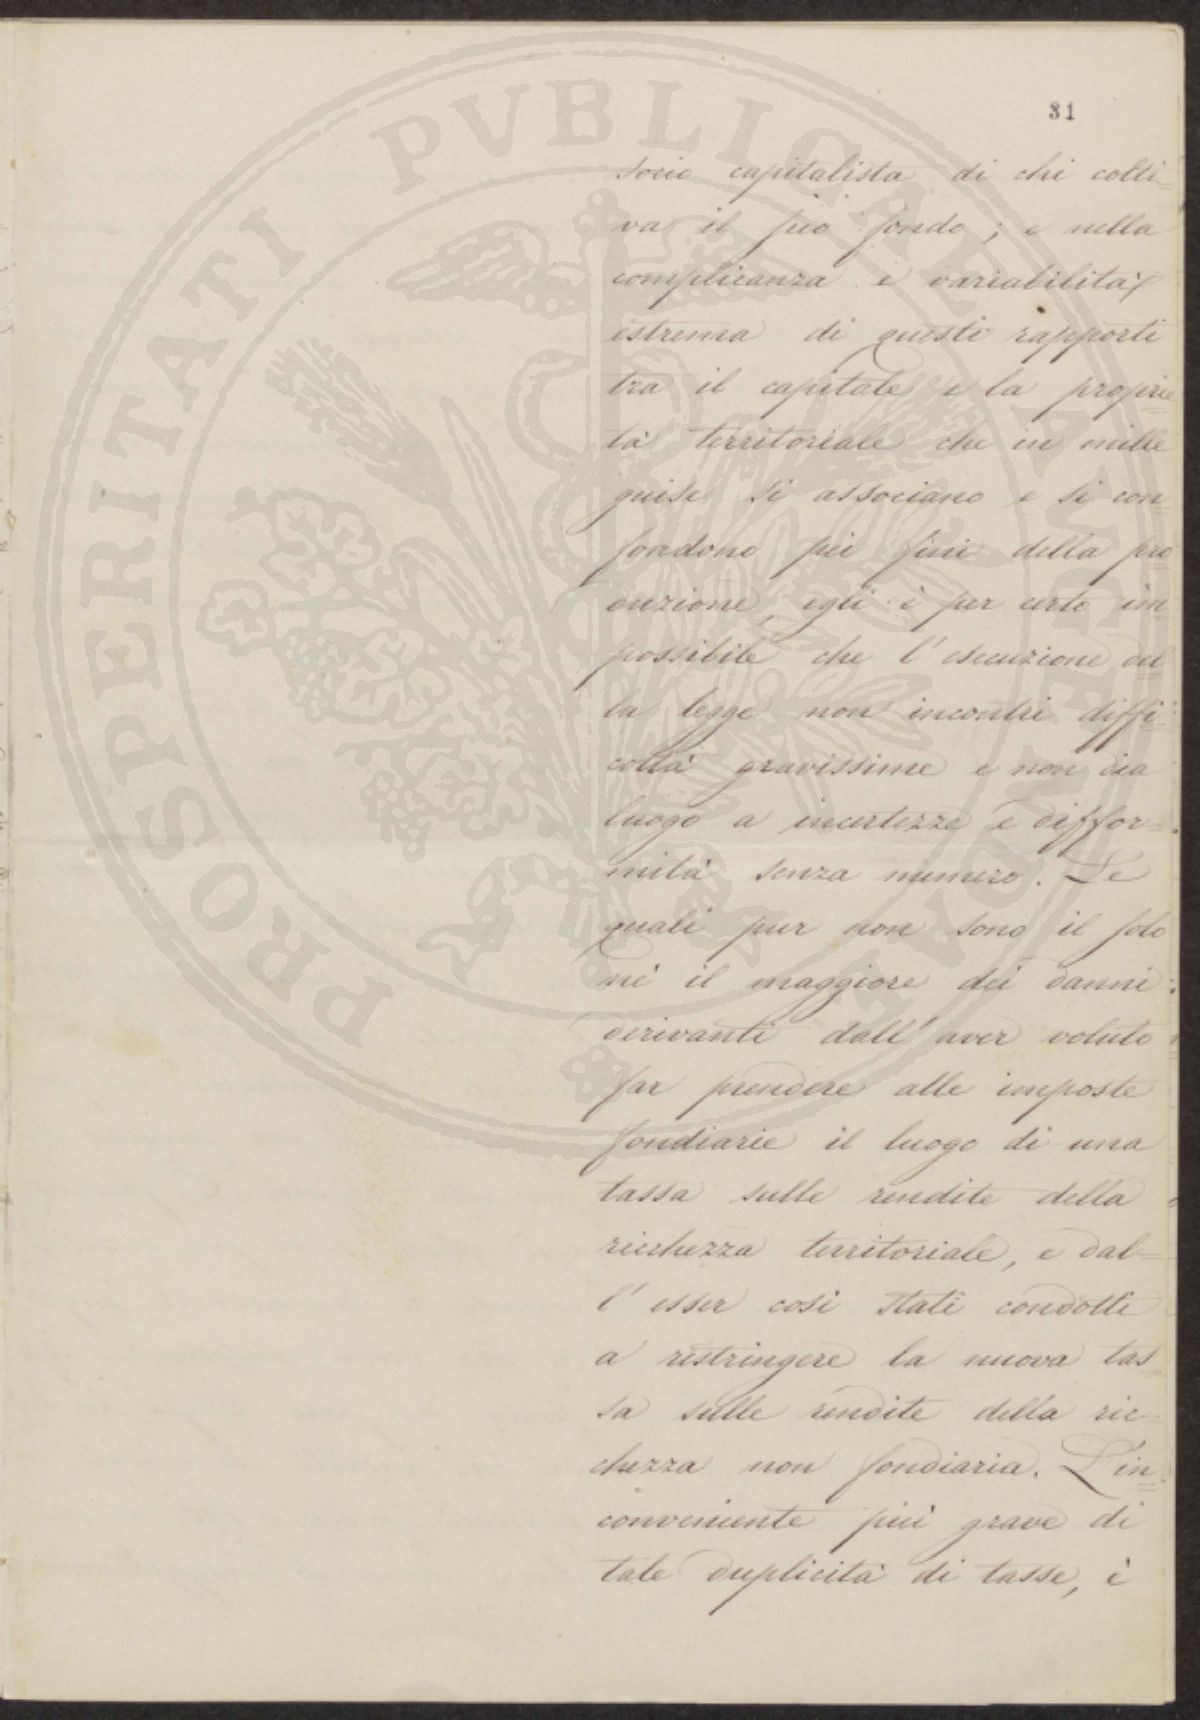 31
socio capitalista di chi colti=
va il pio fondo; e nella
complicanza e variabilità
estrema di questi rapporti
tra il capitale e la proprie
tà territoriale che in mille
guise si associano e si con
fondono pei fini della pro
duzione, egli è per certo im
possibile che l'esecuzione del
la legge non incontri diffi
coltà gravissime e non dia
luogo a incertezze e diffor=
mità senza numero. Le
quali pur non sono il solo
nè il maggiore dei danni
derivanti dall'aver voluto
far prendere alle imposte
fondiarie il luogo di una
tassa sulle rendite della
ricchezza territoriale, e dal=
l'esser così stati condotti
a restringere la nuova tas
sa sulle rendite della ric=
chezza non fondiaria. L'in=
conveniente più grave di
tale duplicità di tasse, è
PROSPERITATI PVBLICAE AVGENDAE